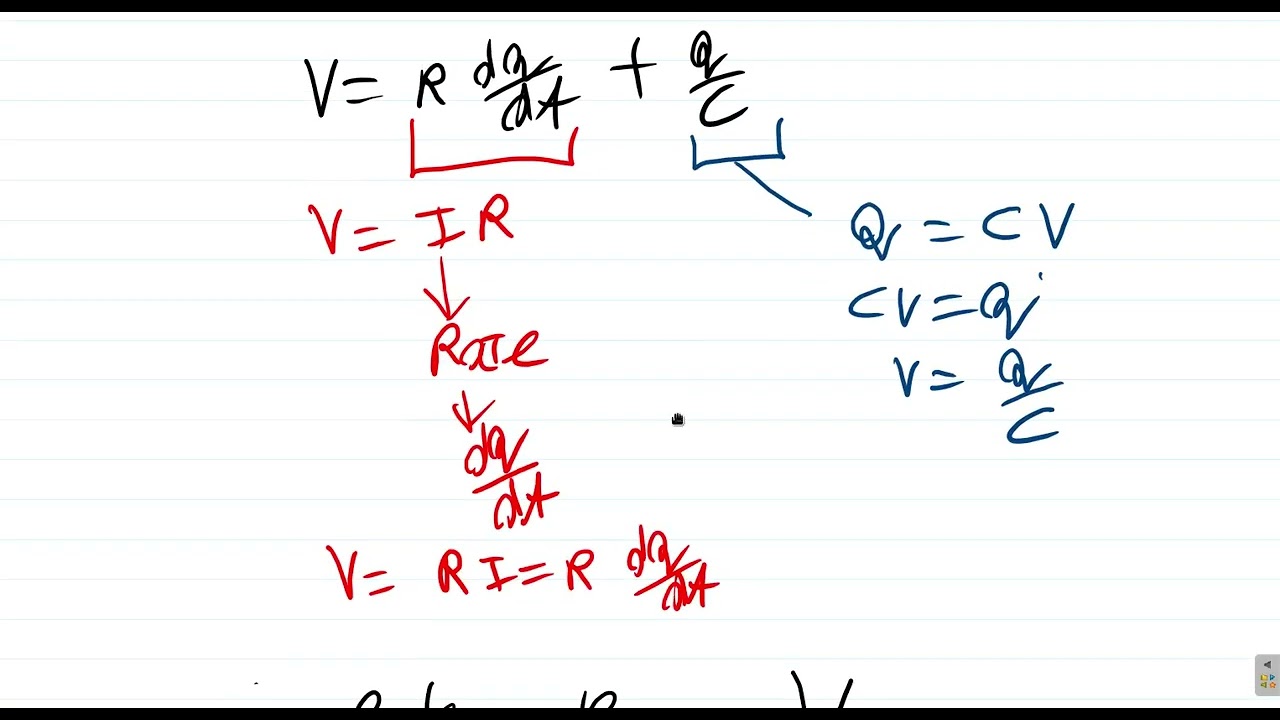 V = R dq/dt + q/C
V = I R
Rate
dq/dt
V = R I = R dq/dt
Q = C V
C V = Q
V = Q/C